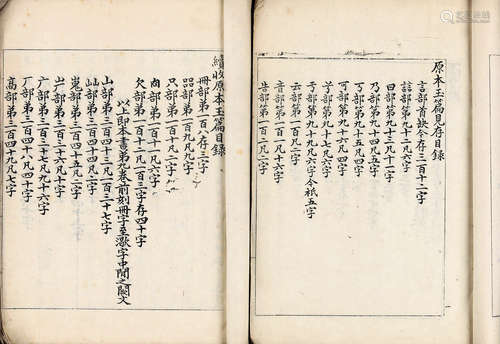 原本玉篇見存目録
言部首缺今存三百十二字
誩部第九十二凡六字
曰部第九十三凡十三字
乃部第九十四凡五字
丂部第九十五凡四字
可部第九十六凡四字
兮部第九十七凡五字
亏部第九十九凡六字今祇五字
云部第一百凡二字
音部第一百一凡十六字
告部第一百二凡二字
續收原本玉篇目録
冊部第一百八存三字
㗊部第一百九凡九字
只部第一百十凡二字
㕯部第一百十一凡四字
欠部第一百十二凡一百三字存四十字
以上即本書第九卷前刻冊字至㰸字中間之闕文
山部第三百四十三凡一百三十七字
屾部第三百四十四凡二字
嵬部第三百四十五凡二字
屵部第三百四十六凡十字
广部第三百四十七凡九十六字
厂部第三百四十八凡四十字
高部第三百四十九凡七字